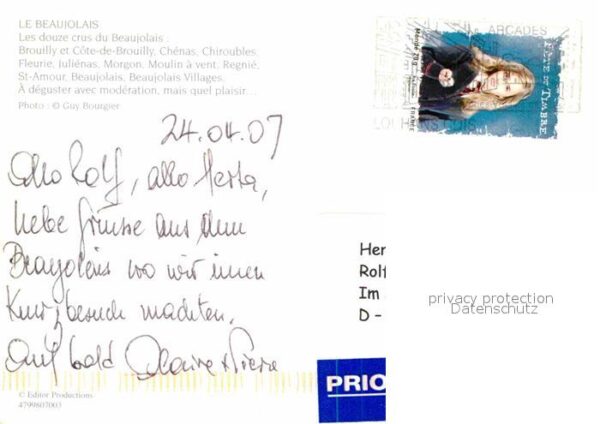 LE BEAUJOLAIS
Les douze crus du Beaujolais :
Brouilly et Côte-de-Brouilly, Chénas, Chiroubles,
Fleurie, Juliénas, Morgon, Moulin à vent, Regnié,
St-Amour, Beaujolais, Beaujolais Villages.
À déguster avec modération, mais quel plaisir...
Photo : © Guy Bourgier
ARCADES
Monde 20 g
FRANCE
FÊTE DU TIMBRE
24.04.07
allo Rolf, allo Herta,
liebe Grüsse aus dem
Beaujolais wo wir einen
Kurzbesuch machten.
Auf bald Claire + Pierre
Her
Rolf
Im
D -
privacy protection
Datenschutz
PRIO
© Editor Productions
4799607003